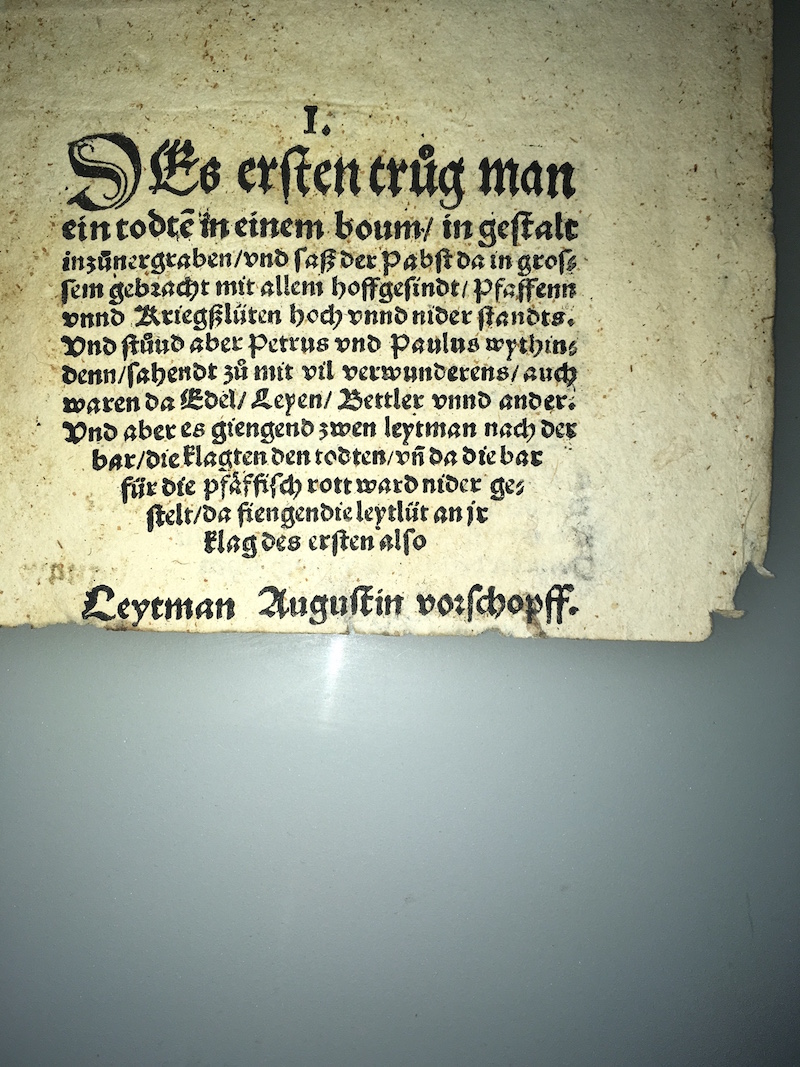 I.
DEs ersten trůg man
ein todtē in einem boum/ in gestalt
inzůuergraben/vnd saß der Pabst da in gros⸗
sem gebracht mit allem hoffgesindt/ Pfaffenn
vnnd Kriegßlüten hoch vnnd nider standts.
Vnd stůnd aber Petrus vnd Paulus wythin⸗
denn/sahendt zů mit vil verwunderens/ auch
waren da Edel/ Leyen/ Bettler vnnd ander.
Vnd aber es giengend zwen leytman nach der
bar/die klagten den todten/vñ da die bar
für die pfäffisch rott ward nider ge⸗
stelt/da fiengen die leytlüt an jr
klag des ersten also
Leytman Augustin vorschopff.